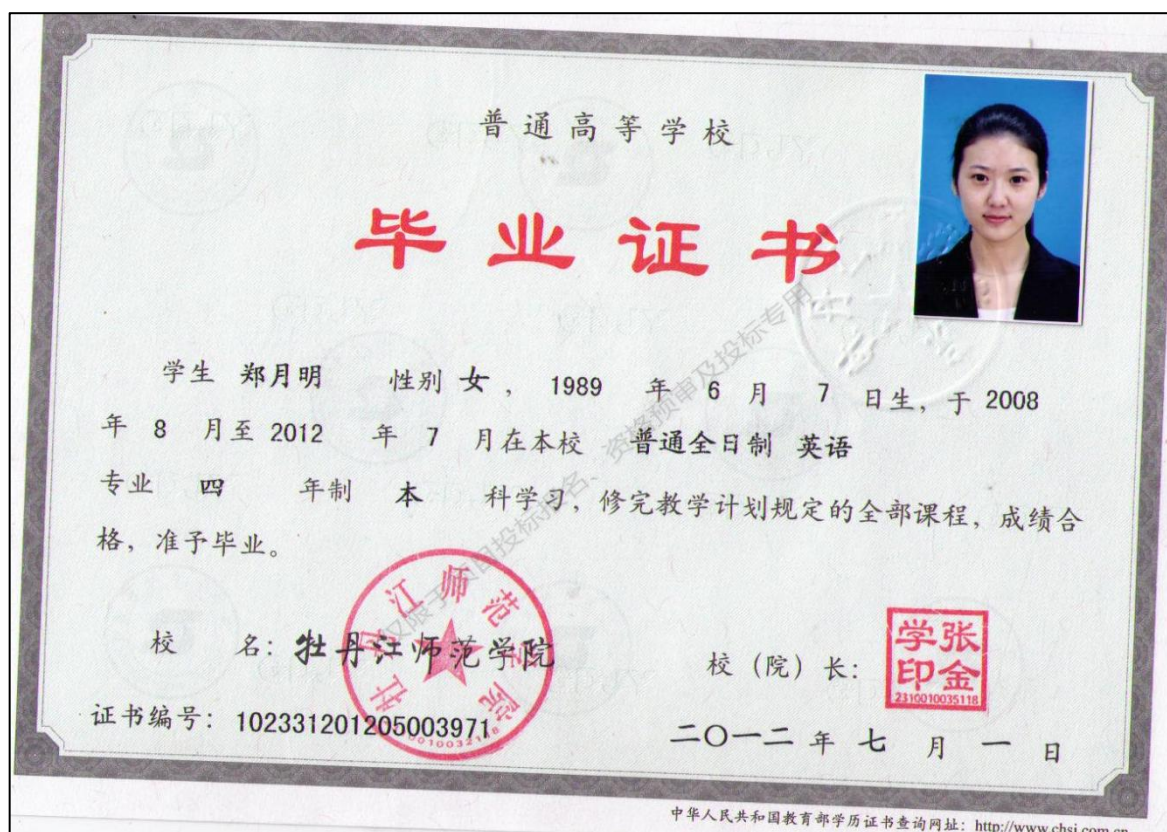 普通高等学校
毕业证书
学生 郑月明 性别 女， 1989 年 6 月 7 日生，于 2008
年 8 月至 2012 年 7 月在本校 普通全日制 英语
专业 四 年制 本 科学习，修完教学计划规定的全部课程，成绩合
格，准予毕业。
仅限于项目投标报名、资格预审及投标专用
校 名：牡丹江师范学院
牡丹江师范学院
校（院）长：
张金学印
2310010035118
证书编号：102331201205003971
二〇一二 年 七 月 一 日
中华人民共和国教育部学历证书查询网址：http://www.chsi.com.cn